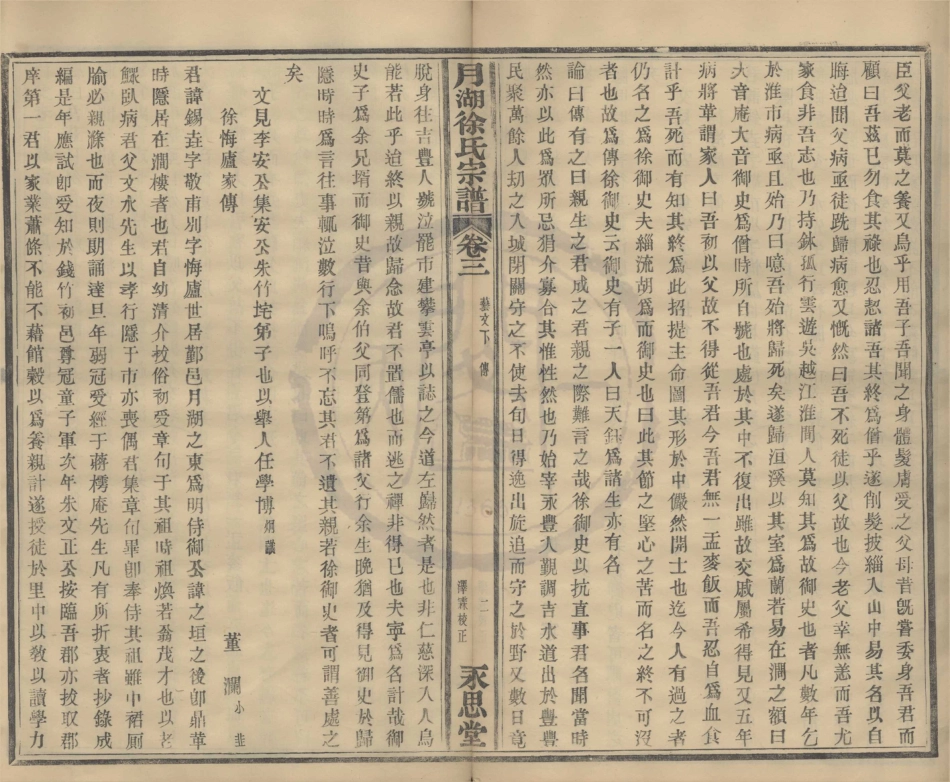 臣父老而莫之養又烏乎用吾子吾聞之身體髮膚受之父母昔旣嘗委身吾君而
顧曰吾茲已勿食其祿也忍恝諸吾其終爲僧乎遂削髮披緇入山中易其名以自
晦迨聞父病亟徒跣歸病愈又慨然曰吾不死徒以父故也今老父幸無恙而吾尤
家食非吾志也乃持鉢孤行雲遊吳越江淮間人莫知其爲故御史也者凡數年乞
於淮市病亟且殆乃曰噫吾殆將歸死矣遂歸洹溪以其室爲蘭若易在澗之額曰
大音庵大音御史爲僧時所自號也處於其中不復出雖故交戚屬希得見又五年
病將革謂家人曰吾初以父故不得從吾君今吾君無一盂麥飯而吾忍自爲血食
計乎吾死而有知其終爲此招提主命圖其形於中儼然開士也迄今人有過之者
仍名之爲徐御史夫緇流胡爲而御史也曰此其節之堅心之苦而名之終不可沒
者也故爲傳徐御史云御史有子一人曰天鈺爲諸生亦有名
論曰傳有之曰親生之君成之君親之際難言之哉徐御史以抗直事君名聞當時
然亦以此爲眾所忌狷介寡合其惟性然也乃始宰永豐人覲調吉水道出於豐豐
民聚萬餘人刧之入城閉關守之不使去旬日得逸出旋追而守之於野又數日竟
月湖徐氏宗譜
卷三
藝文下 傳
二
澤霖校正
永思堂
脫身往吉豐人號泣罷市建攀雲亭以誌之今道左巋然者是也非仁慈深入人烏
能若此乎迨終以親故歸念故君不置儒也而逃之禪非得已也夫寧爲名計哉御
史子爲余兄壻而御史昔與余伯父同登第爲諸父行余生晚猶及得見御史於歸
隱時時爲言往事輒泣數行下嗚呼不忘其君不遺其親若徐御史者可謂善處之
矣
文見李安公集安公朱竹垞弟子也以舉人任學博 烱識
徐悔廬家傳
董 瀾 小韭
君諱錫垚字敬甫別字悔廬世居鄞邑月湖之東爲明侍御公諱之垣之後卽鼎革
時隱居在澗樓者也君自幼清介拔俗初受章句于其祖時祖煥若翁茂才也以老
鰥臥病君父文水先生以孝行隱于市亦喪偶君集章句畢卽奉侍其祖雖中裙厠
牏必親滌也而夜則期誦達旦年弱冠受經于蔣樗庵先生凡有所折衷者抄錄成
編是年應試卽受知於錢竹初邑尊冠童子軍次年朱文正公按臨吾郡亦拔取郡
庠第一君以家業蕭條不能不藉館穀以爲養親計遂授徒於里中以敎以讀學力